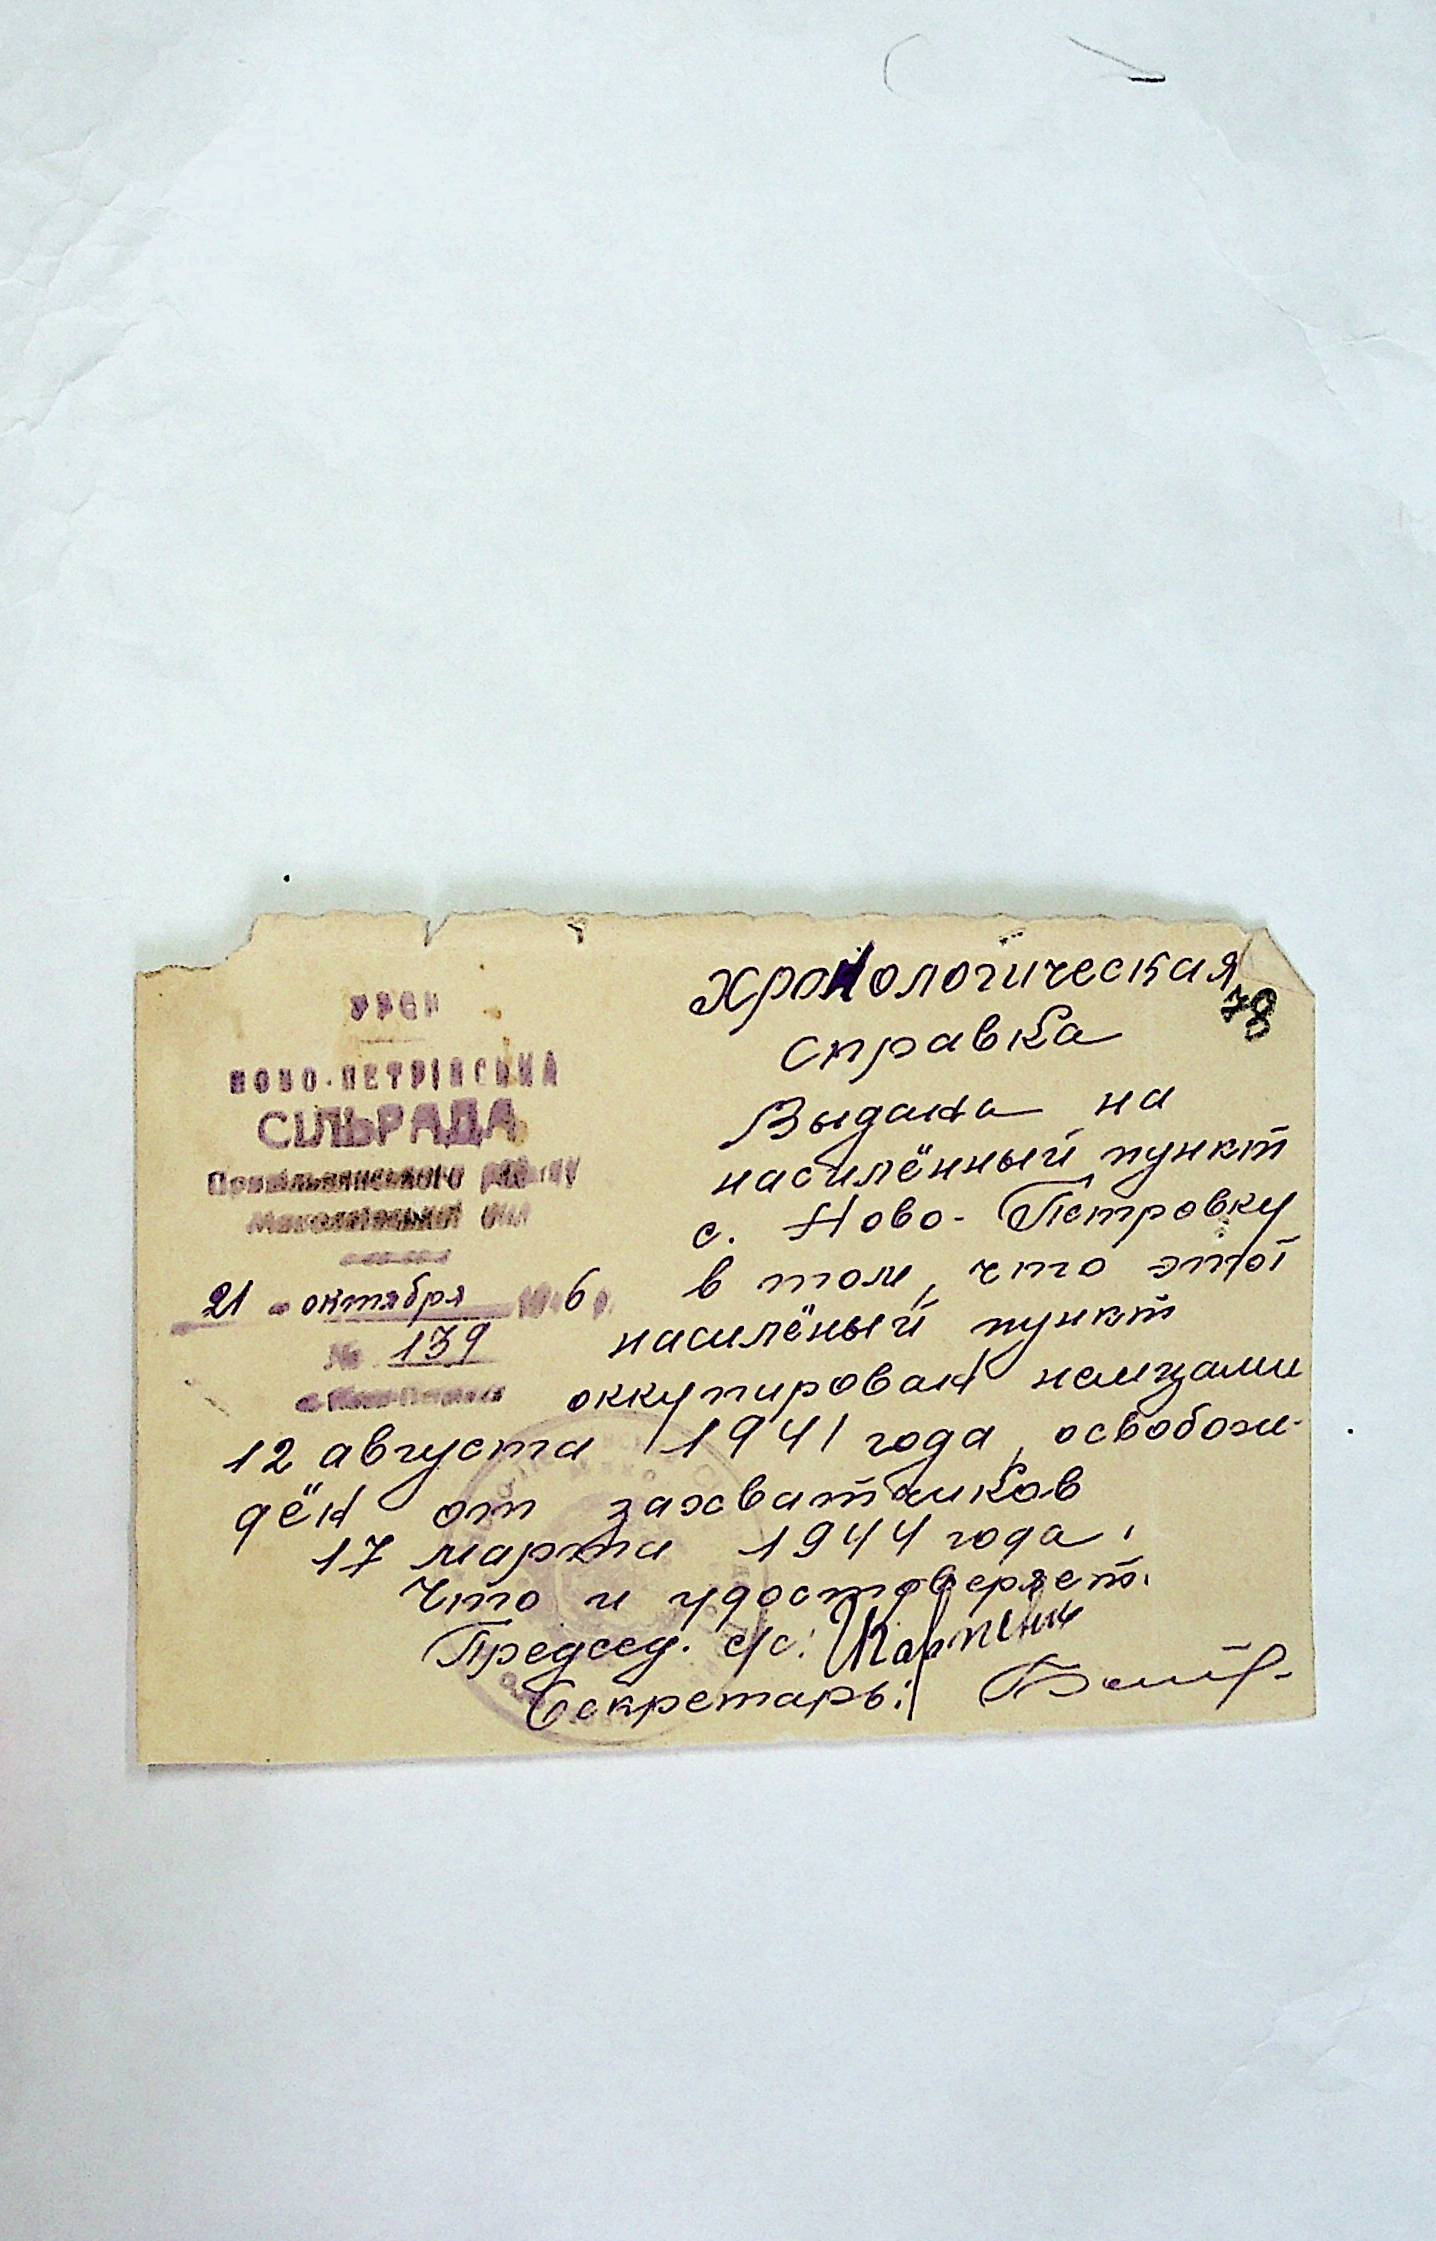 УРСР
НОВО-ПЕТРІВСЬКА
СІЛЬРАДА
району
21 октября 1946 р.
№ 139
Хронологическая
78
справка
Выдана на
насилённый пункт
с. Ново-Петровку
в том, что этот
насилёный пункт
оккупирован немцами
12 августа 1941 года, освобож-
дён от захватчиков
17 марта 1944 года,
Что и удостоверяет.
Председ. с/с:
Секретарь: